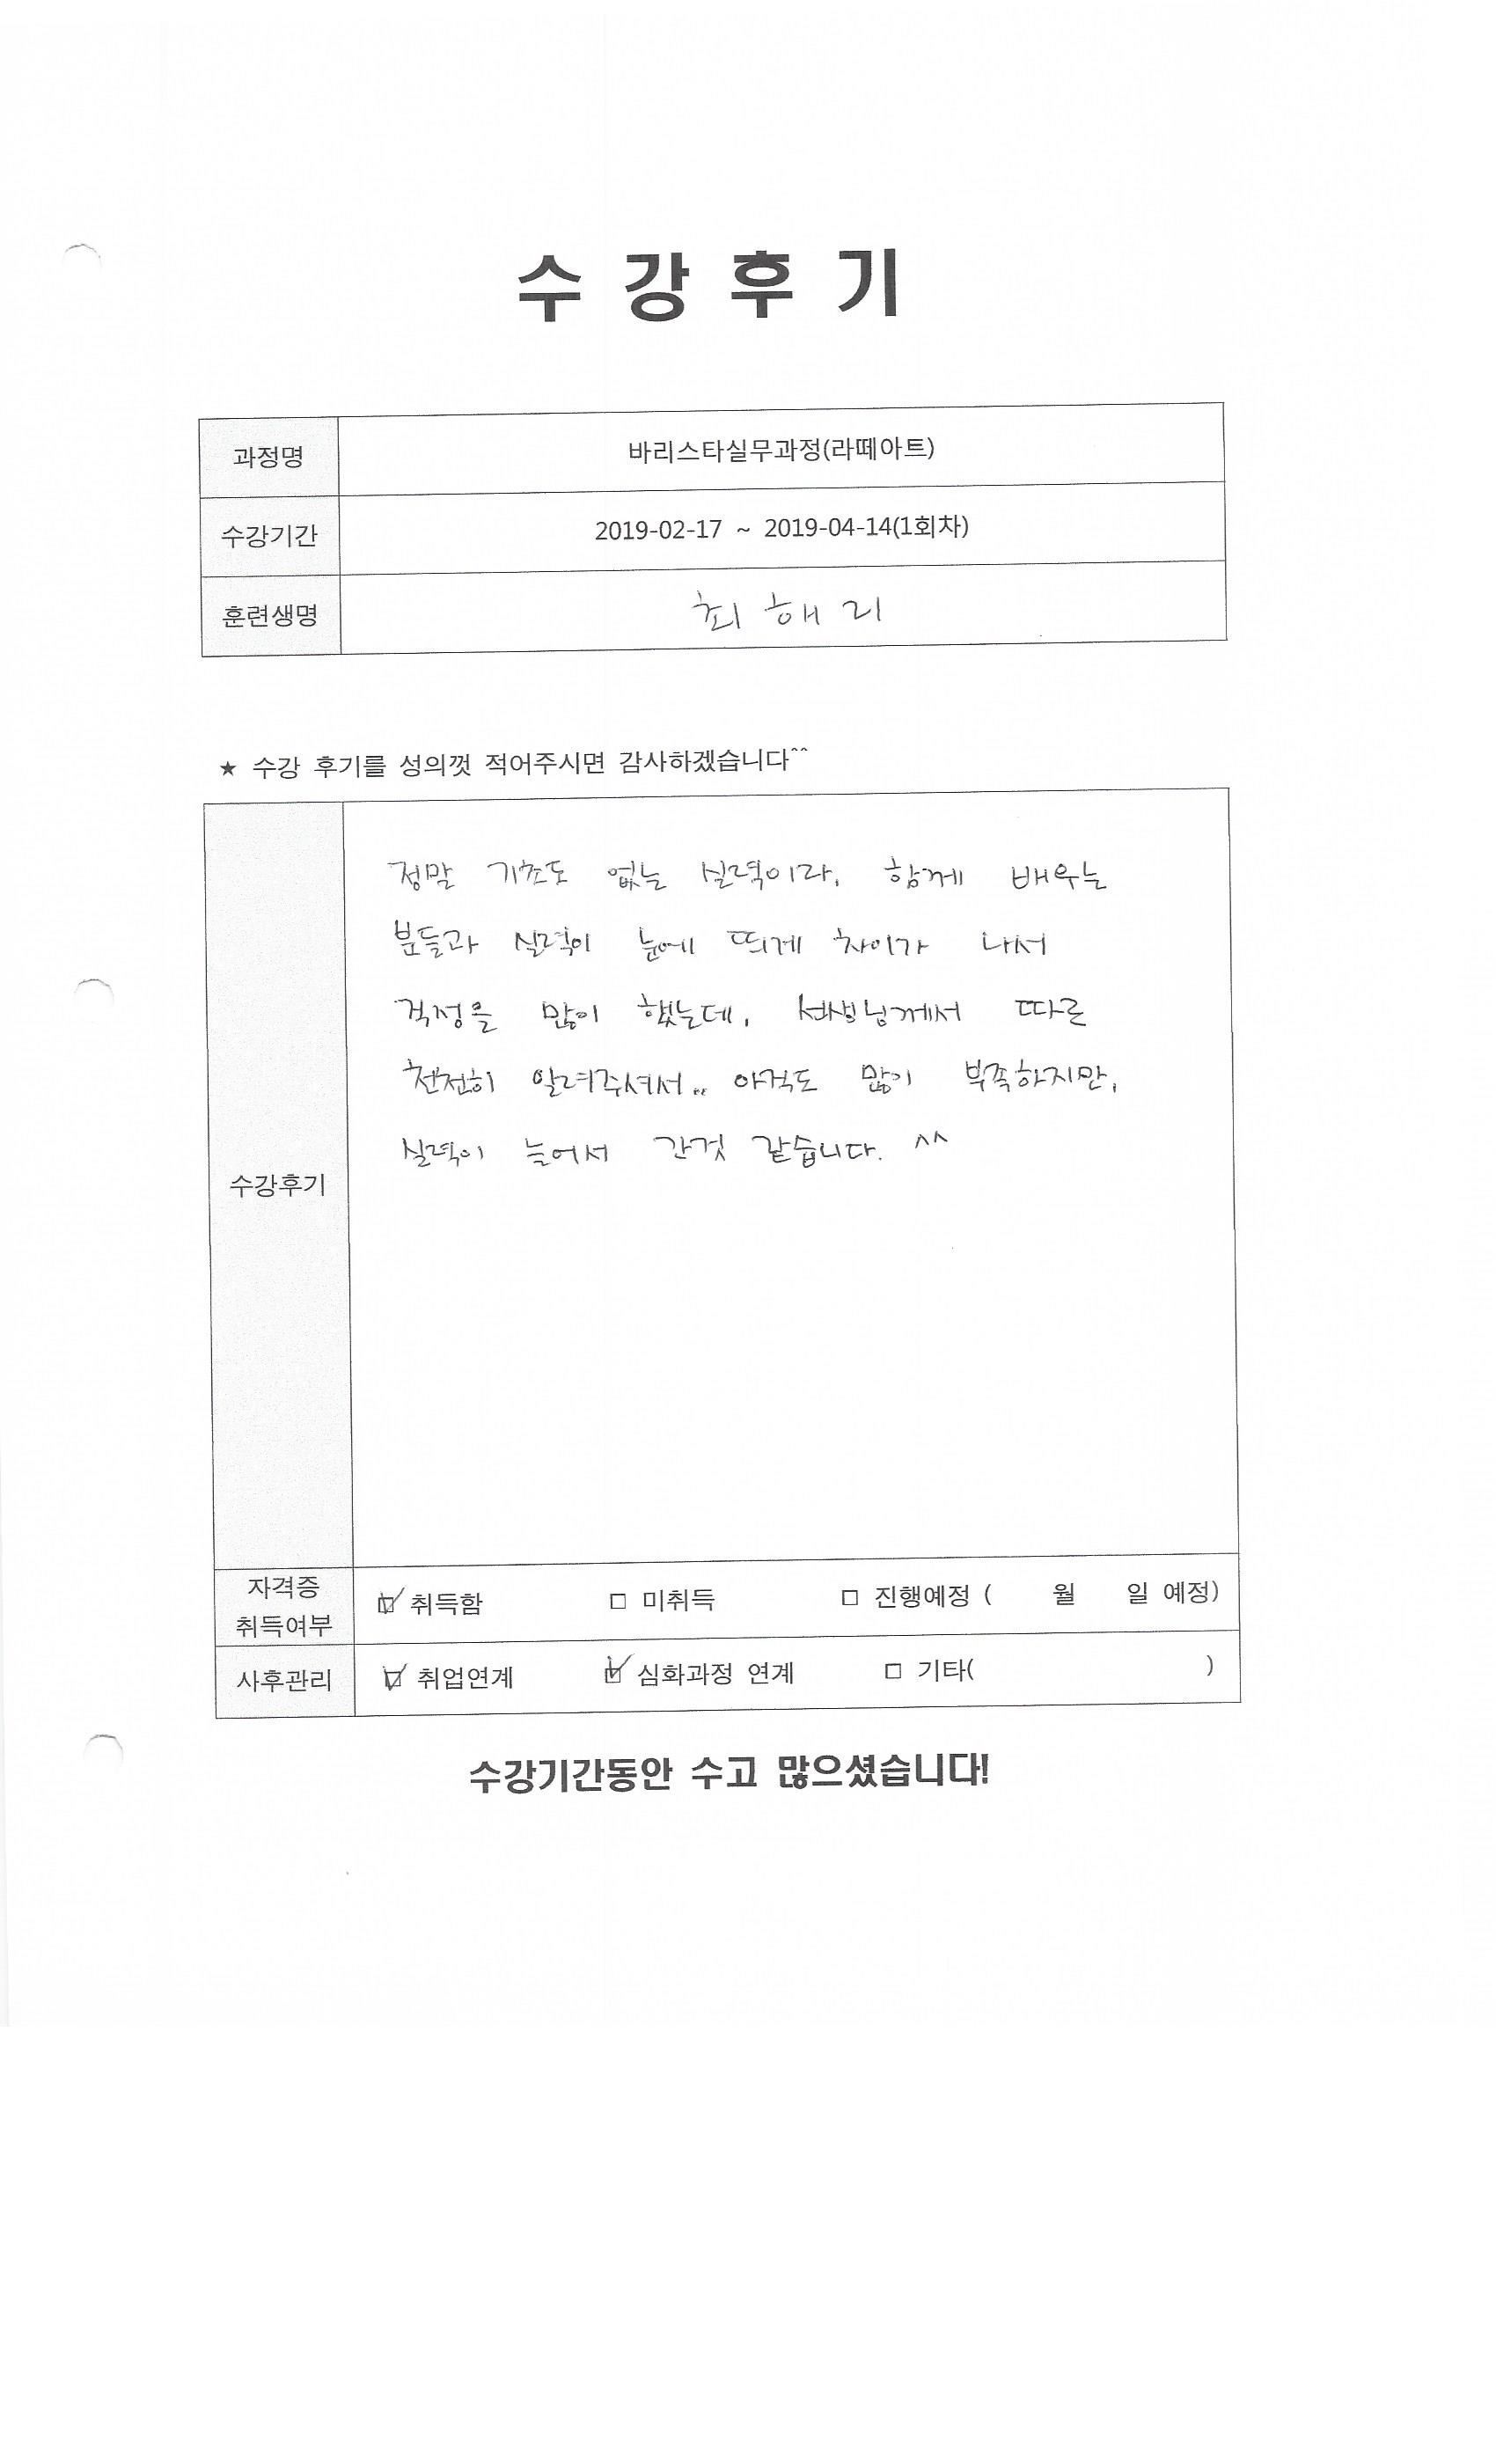 수 강 후 기
과정명 바리스타실무과정(라떼아트)
수강기간 2019-02-17 ~ 2019-04-14(1회차)
훈련생명 최해리
★ 수강 후기를 성의껏 적어주시면 감사하겠습니다^^
정말 기초도 없는 실력이라, 함께 배우는
분들과 실력이 눈에 띄게 차이가 나서
걱정을 많이 했는데, 선생님께서 따로
천천히 알려주셔서.. 아직도 많이 부족하지만,
실력이 늘어서 간것 같습니다. ^^
수강후기
자격증
취득여부 ☑ 취득함 □ 미취득 □ 진행예정 ( 월 일 예정)
사후관리 ☑ 취업연계 ☑ 심화과정 연계 □ 기타( )
수강기간동안 수고 많으셨습니다!